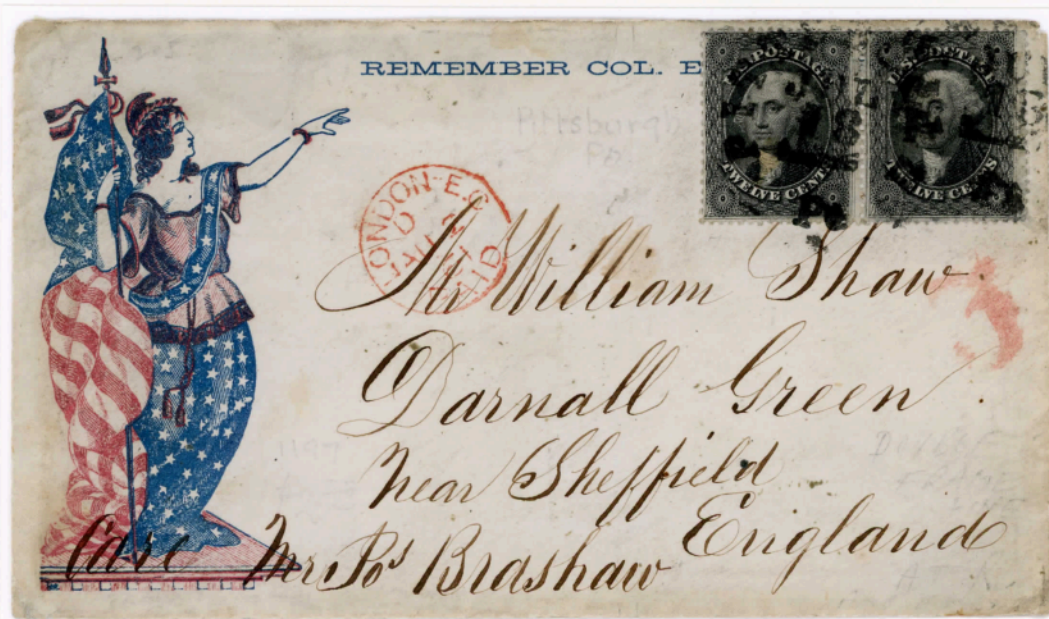 REMEMBER COL. E
Pittsburgh
Pa
U.S. POSTAGE
TWELVE CENTS
U.S. POSTAGE
TWELVE CENTS
LONDON-E.C
PAID
3
Mr William Shaw
Darnall Green
Near Sheffield
England
Care Mr Jos Bradshaw